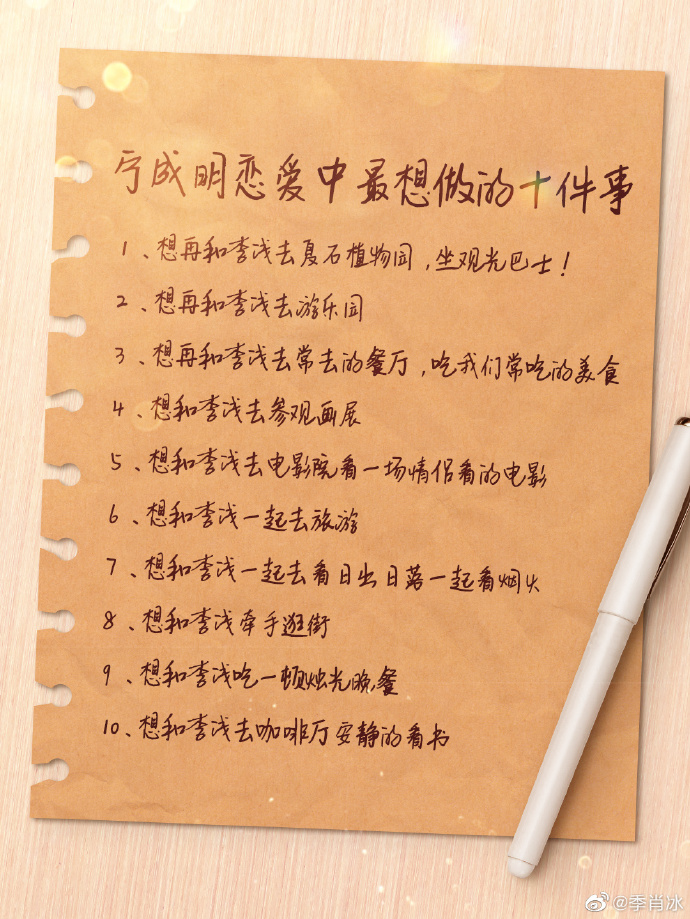 宁成明恋爱中最想做的十件事
1、想再和李浅去夏石植物园，坐观光巴士！
2、想再和李浅去游乐园
3、想再和李浅去常去的餐厅，吃我们常吃的美食
4、想和李浅去参观画展
5、想和李浅去电影院看一场情侣看的电影
6、想和李浅一起去旅游
7、想和李浅一起去看日出日落一起看烟火
8、想和李浅牵手逛街
9、想和李浅吃一顿烛光晚餐
10、想和李浅去咖啡厅安静的看书
@季肖冰